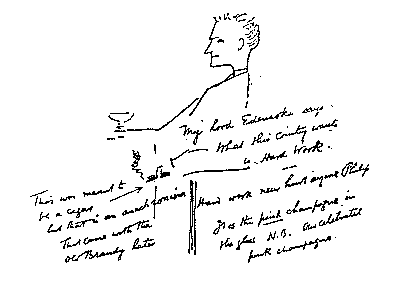 My Lord Edenaske says.
What this County wants
is Hard Work.
This was meant to
be a cigar
but that is an anachronism
That came with the
old Brandy later
Hard work never hurt anyone Philip
It is the pink champagne in
the glass N.B. Our celebrated
pink champagne.